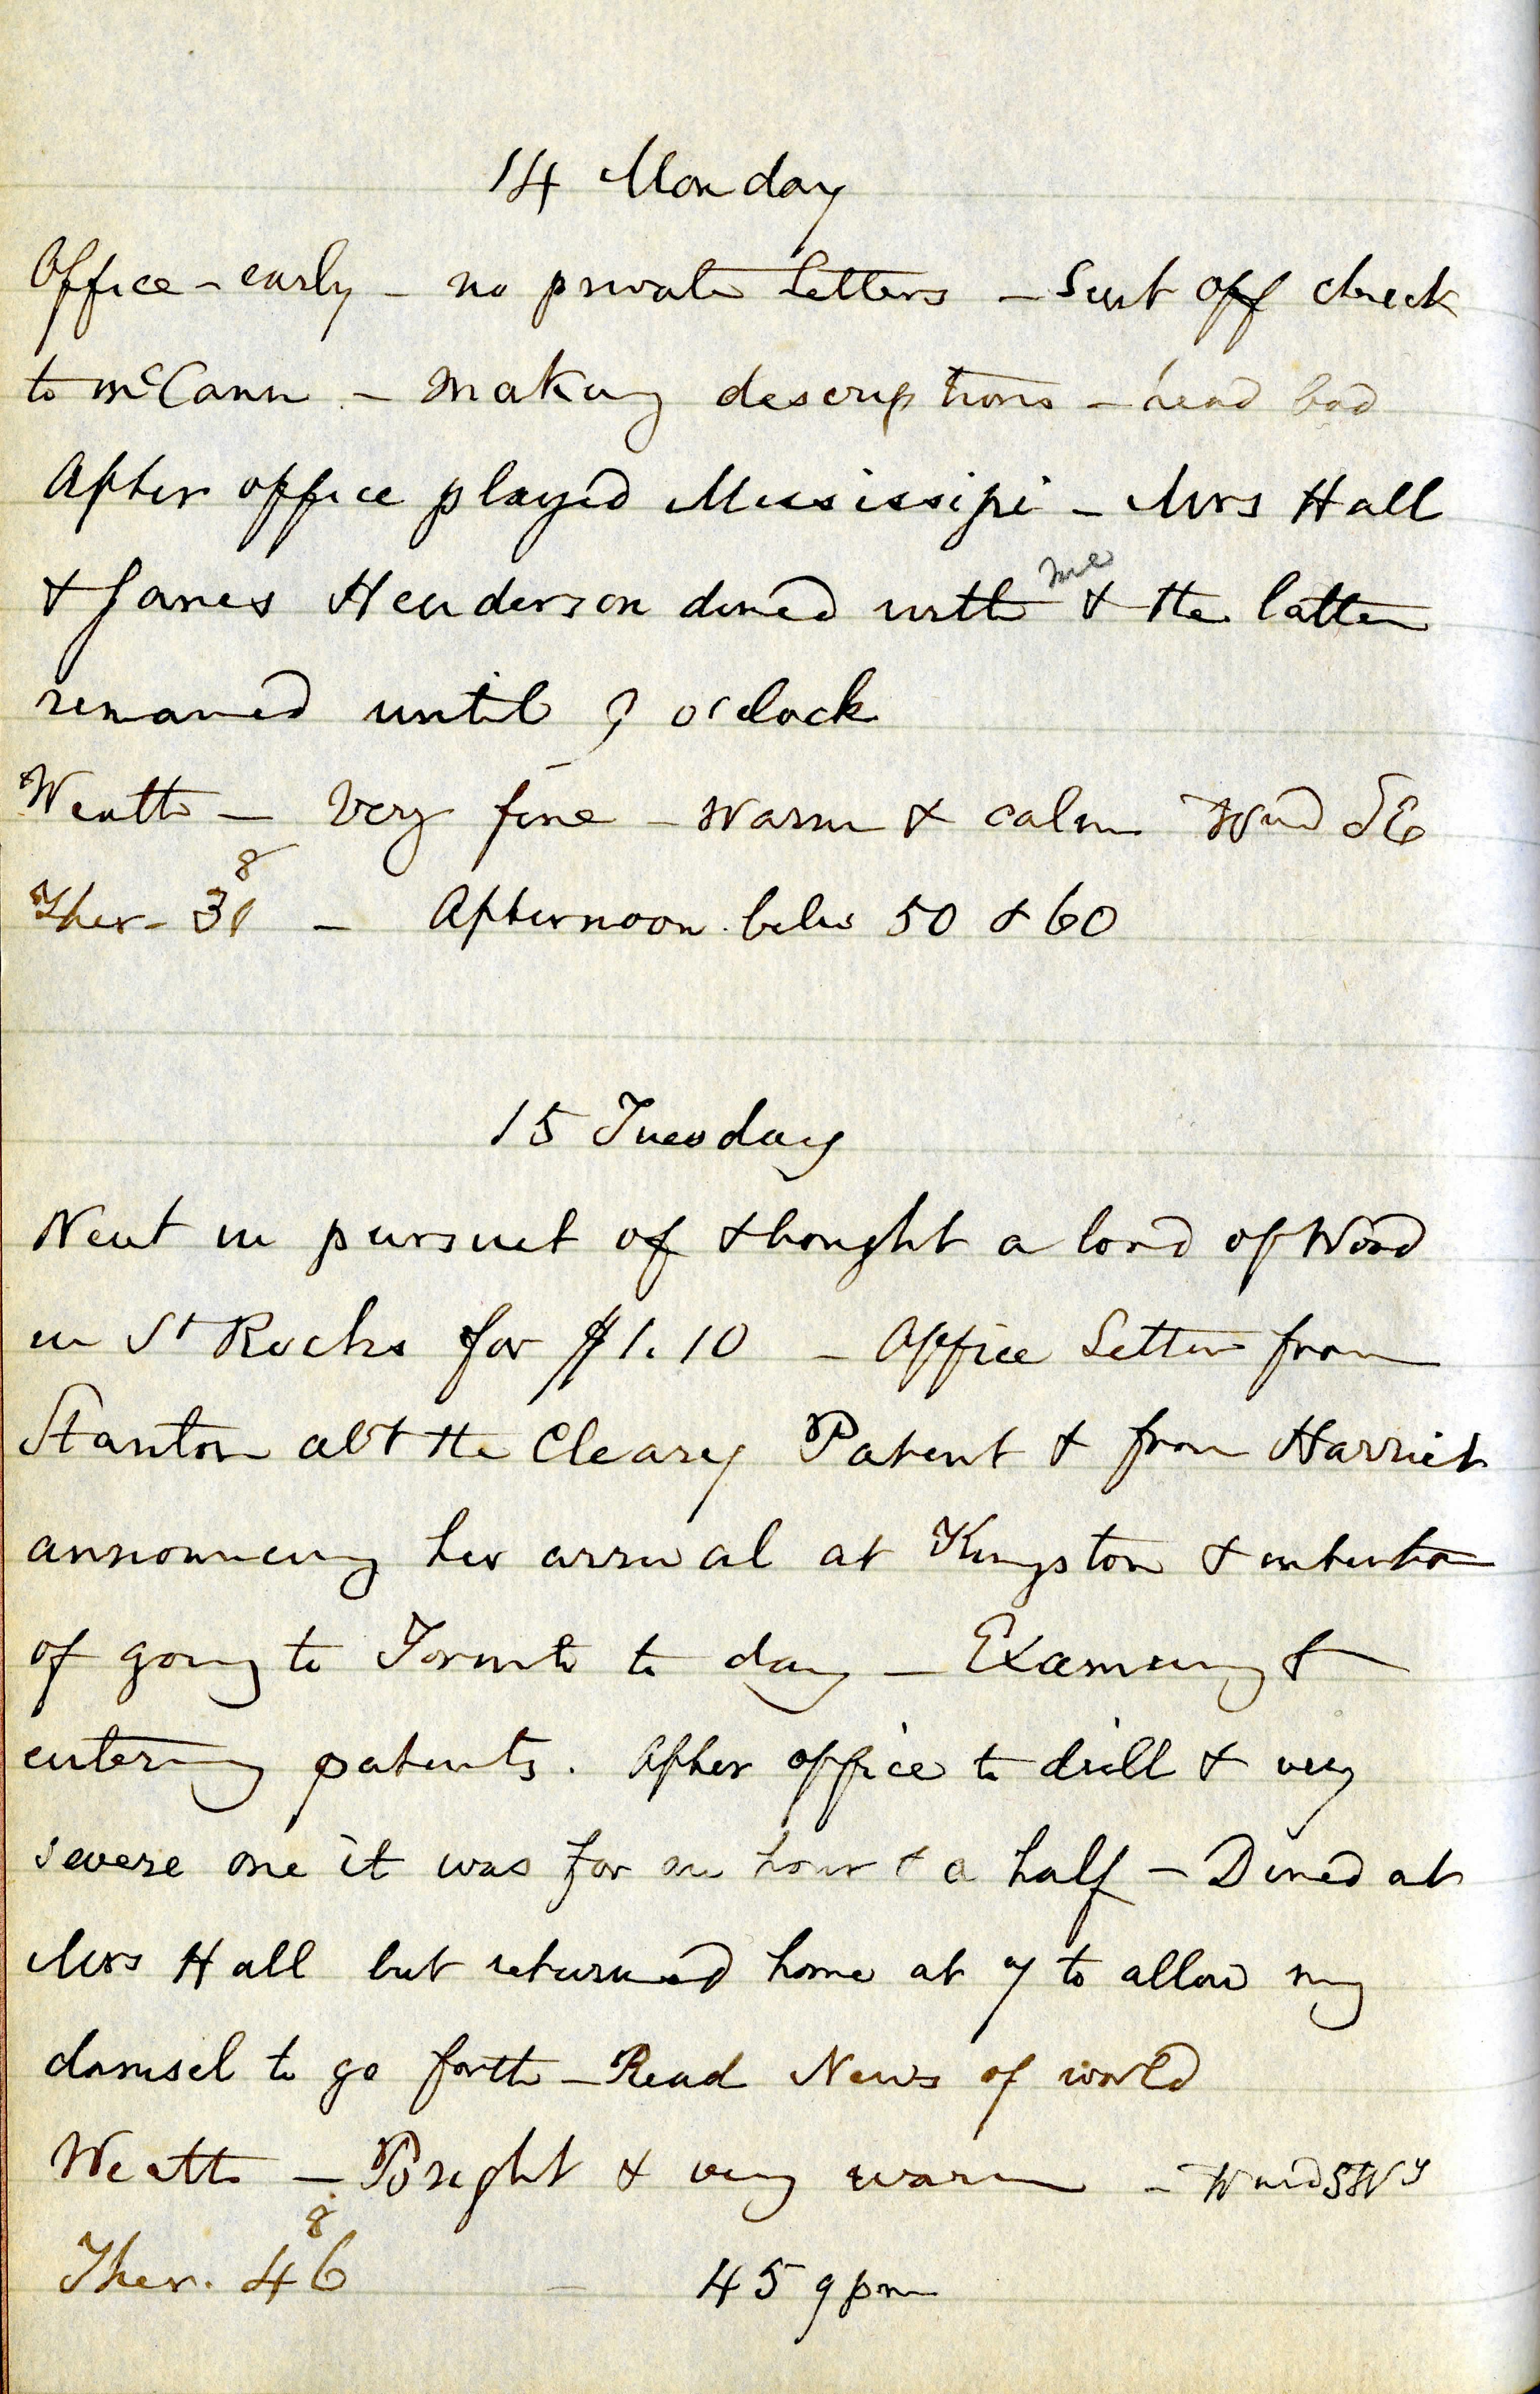 14 Monday
Office - early - no private letters - Sent off check
to McCann - making descriptions - head bad
After office played Mississipi - Mrs Hall
me
& James Henderson dined with & the latter
remained until 9 o'clock
Weath - Very fine - warm & calm Wind SE
8
Ther - 31 - Afternoon betw 50 & 60
15 Tuesday
Went in pursuit of & bought a load of Wood
in St Rochs for $1.10 - Office Letter from
Stanton abt the Cleary Patent & from Harriet
announcing her arrival at Kingston & intention
of going to Toronto to day - Examining &
entering patents. After office to drill & very
severe one it was for an hour & a half - Dined at
Mrs Hall but returned home at 7 to allow my
damsel to go forth - Read News of world
Weath - Bright & very warm - Wind SWy
8
Ther. 46 - 45 9 pm